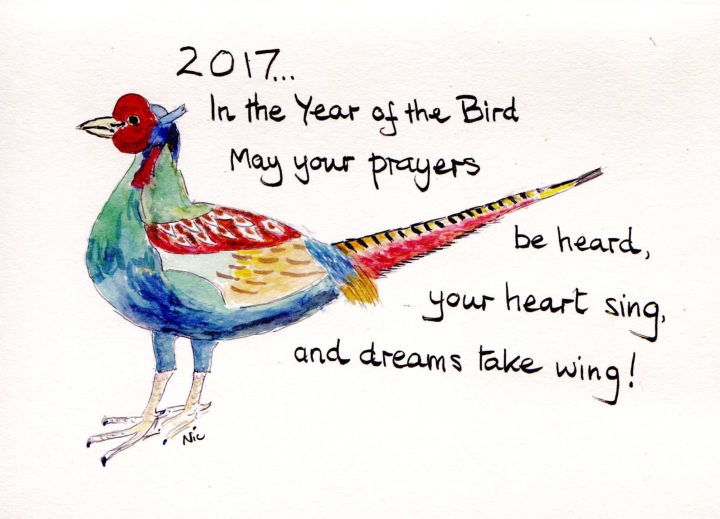 2017...
In the Year of the Bird
May your prayers
be heard,
your heart sing,
and dreams take wing!
Nic